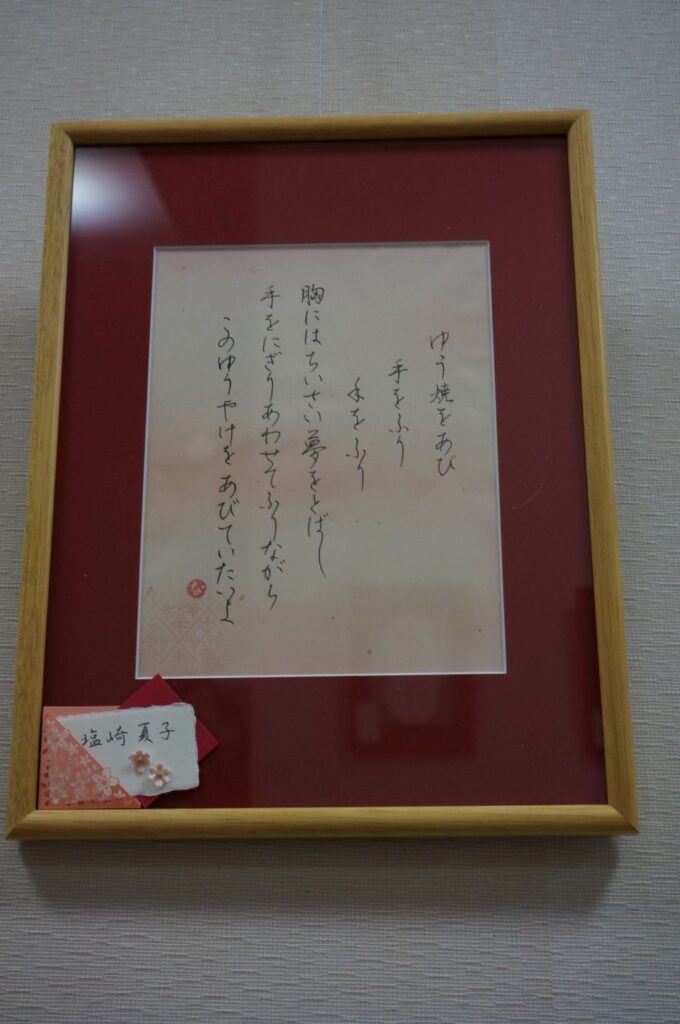 ゆう焼をあび
手をふり
手をふり
胸にはちいさい夢をとばし
手をにぎりあわせてふりながら
このゆうやけをあびていたいよ
塩崎夏子